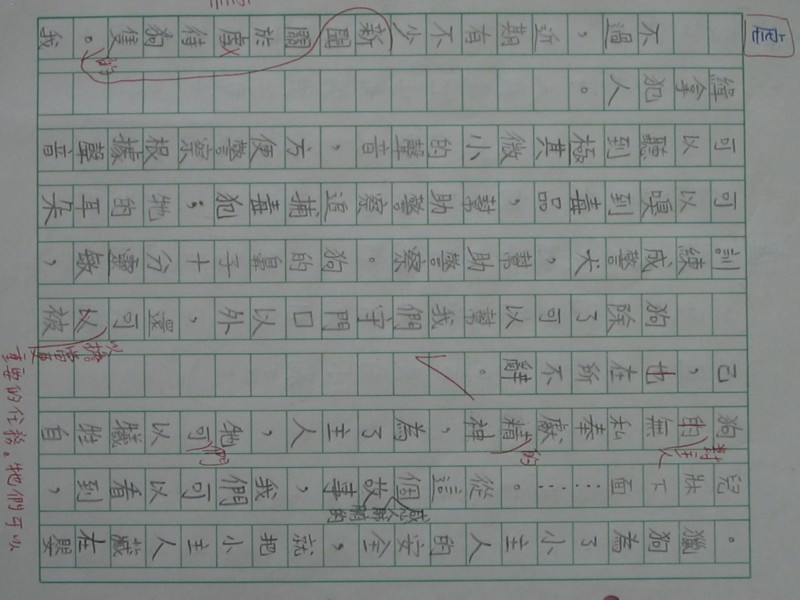 。獵狗為了小主人的安全，就把小主人藏在嬰
兒牀下面……。從這個故事，我們可以看到，
感人肺腑的
狗的無私奉獻精神，為了主人，牠可以犧牲自
對主人
的
們
己，也在所不辭。
狗除了可以幫我們守門口以外，還可以被
以擔當更
重要的任務。牠們可以
訓練成警犬，幫助警察。狗的鼻子十分靈敏，
可以嗅到毒品，幫助警察追捕毒犯；牠的耳朵
可以聽到極其微小的聲音，方便警察根據聲音
緝拿犯人。
不過，近期有不少新聞關於虐待狗隻。我
的
虐